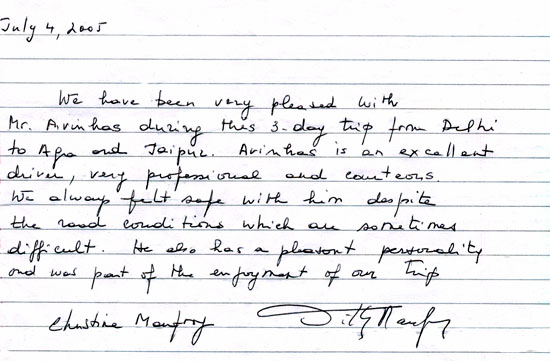 July 4, 2005
We have been very pleased with
Mr. Avinhas during this 3-day trip from Delhi
to Agra and Jaipur. Avinhas is an excellent
driver, very professional and courteous.
We always felt safe with him despite
the road conditions which are sometimes
difficult. He also has a pleasant personality
and was part of the enjoyment of our trip
Christine